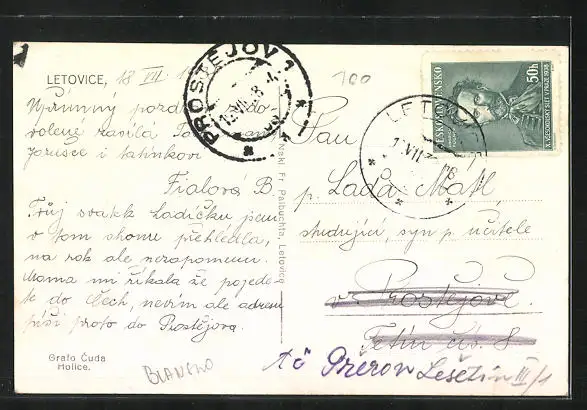 LETOVICE, 18 VII
Upřímný pozdrav
Jarušce i tatínkovi
Fialová B.
Tvůj svátek Ladíčku jsem
v tom shonu přehlédla,
na rok ale nezapomenu.
Mama mi říkala že pojede-
te do Čech, nevím ale adresu
píši proto do Prostějova.
Grafo Čuda
Holice.
BLANSKO
Nakl. Fr. Palbuchta, Letovice
PROSTĚJOV 1
100
ČESKOSLOVENSKO
50h
X. VŠESOKOLSKÝ SLET V PRAZE 1938
Pan
p. Laďa Mátl,
studující, syn p. učitele
v Prostějově.
Tetín čís. 8
Přerov Lešetín III/1